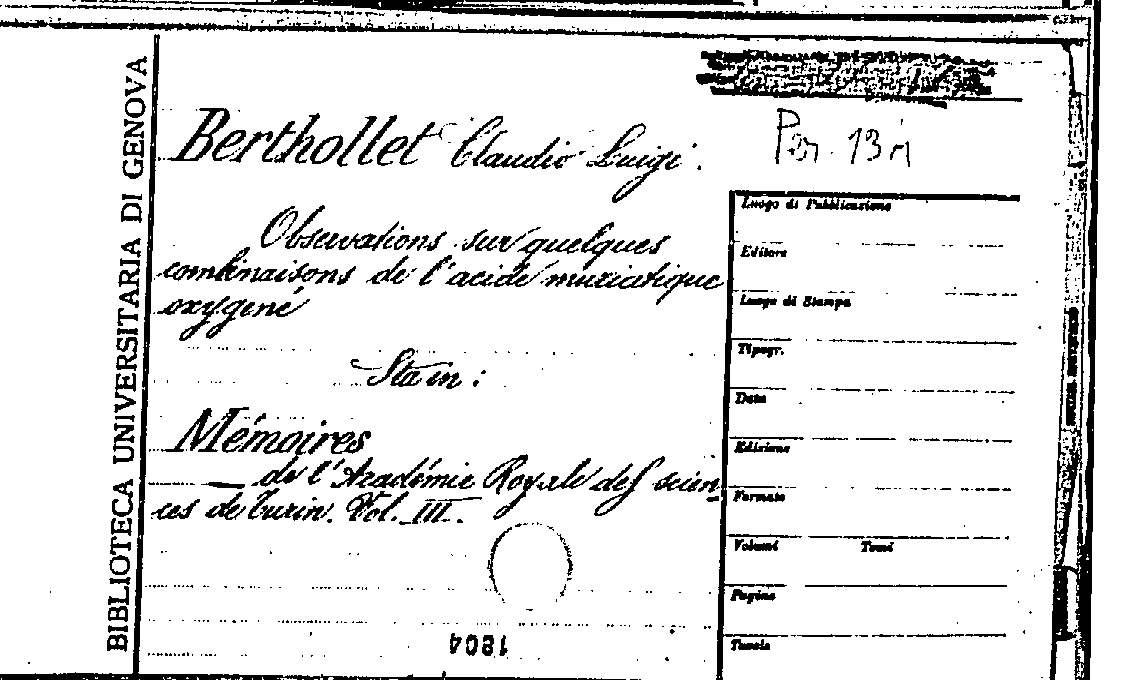 BIBLIOTECA UNIVERSITARIA DI GENOVA
Berthollet Claudio Luigi.
Observations sur quelques
combinaisons de l'acide muriatique
oxygené
Sta in:
Mémoires
de l'Académie Royale des scien
ces de Turin. Vol. III.
1804
Per. 13
Luogo di Pubblicazione
Editore
Luogo di Stampa
Tipogr.
Data
Edizione
Formato
Volumi Tomi
Pagine
Tavole